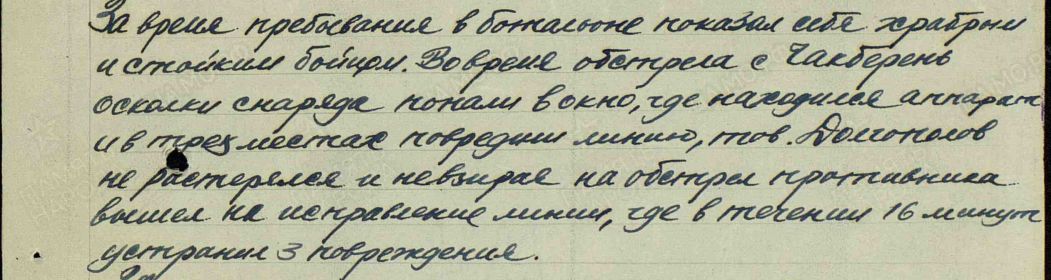 За время пребывания в батальоне показал себя храбрым
и стойким бойцом. Во время обстрела с Чакберень
осколки снаряда попали в окно, где находился аппарат
и в трех местах повредили линию, тов. Долгополов
не растерялся и невзирая на обстрел противника
вышел на исправление линии, где в течении 16 минут
устранил 3 повреждения.